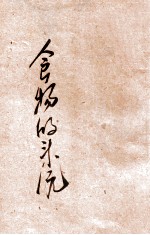 食物的来源